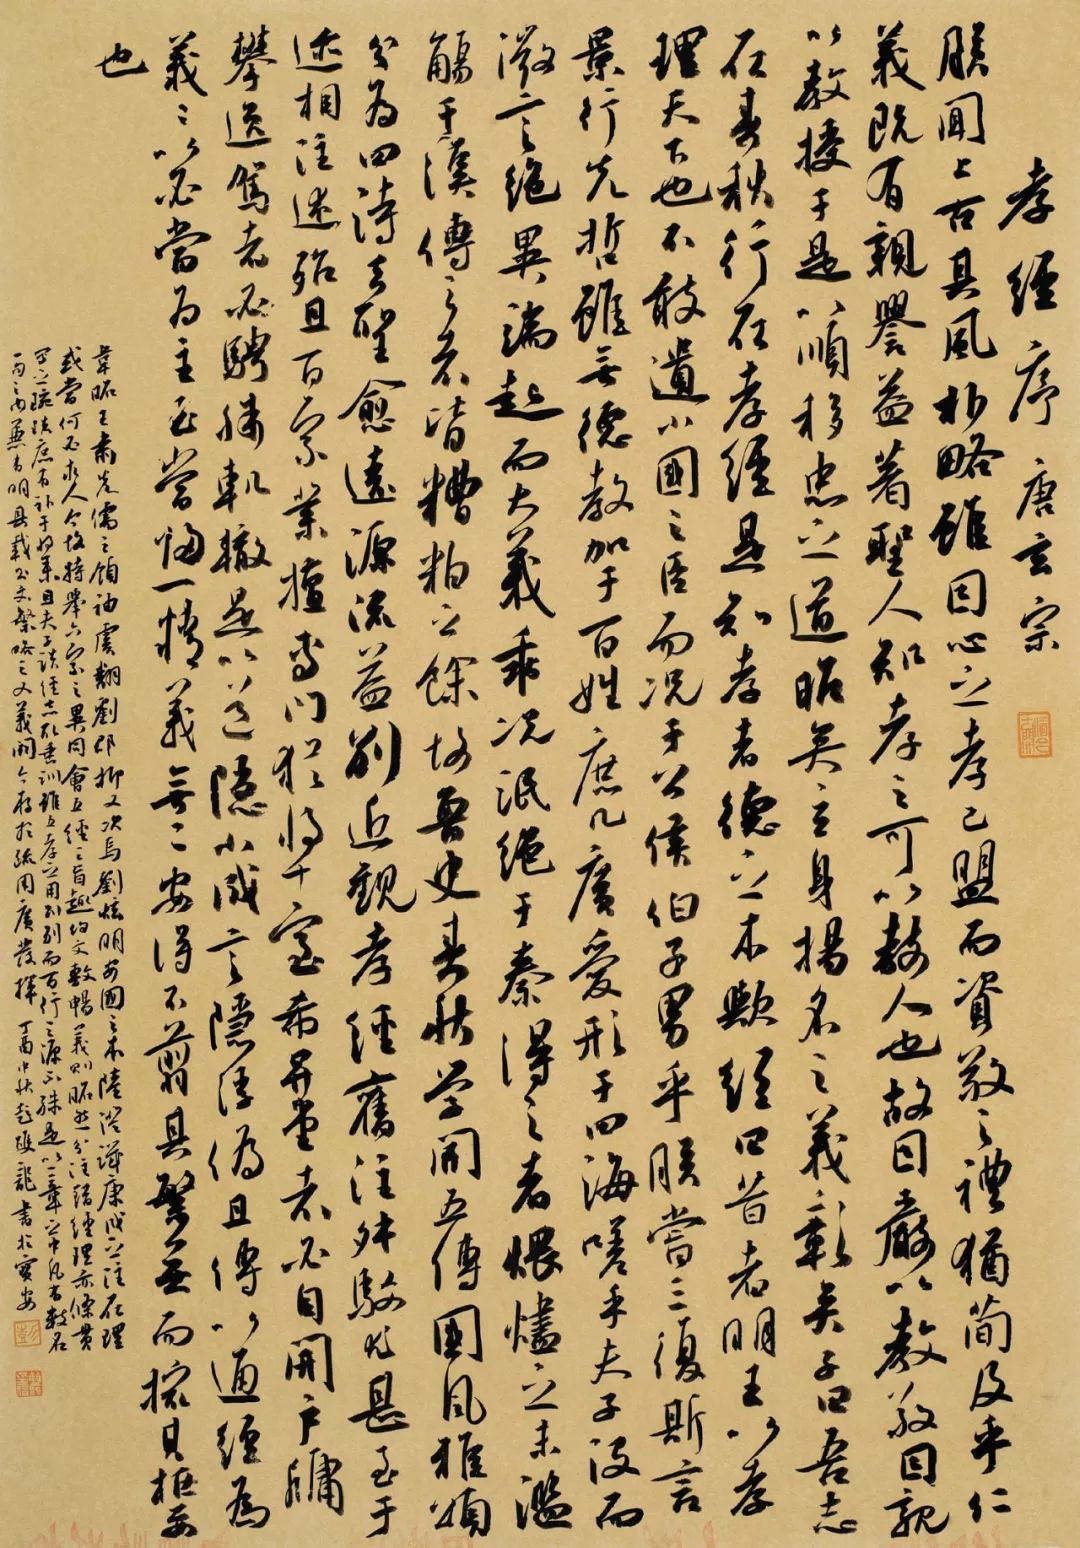 孝經序 唐玄宗
朕聞上古其風朴略雖因心之孝已盟而資敬之禮猶簡及乎仁
義既有親譽益著聖人知孝之可以教人也故因嚴以教敬因親
以教授于是以順移忠之道昭矣立身揚名之義彰矣子曰吾志
在春秋行在孝經是知孝者德之本歟經曰昔者明王以孝
理天下也不敢遺小國之臣而況于公侯伯子男乎朕嘗三復斯言
景行先哲雖無德教加于百姓庶几廣愛形于四海嗟乎夫子沒而
微言絕異端起而大義乖況泯絕于秦得之者煨燼之末濫
觴于漢傳之者皆糟粕之餘故魯史春秋學開五傳國風雅頌
分為四詩去聖愈遠源流益別近觀孝經舊注舛駁尤甚至于
迹相注述殆且百家業擅專門猶將十室希升堂者必自開戶牖
攀逸駕者必騁殊軌轍是以道隱小成言隱浮偽且傳以通經為
義義以必當為主至當歸一精義無二安得不翦其繁蕪而撮其樞要
也
韋昭王肅先儒之領袖虞翻劉邵抑又次焉劉炫明安國之本陸澄譏康成之注在理
或當何必求人今故特舉六家之異同會五經之旨趣約文敷暢義則昭然分注錯經理亦條貫
寫之琬琰庶有補于將來且夫子談經志取垂訓雖五孝之用則別而百行之源不殊是以一章之中凡有數句
一句之內兼有明具載則文繁略之又義闕今存於疏用廣發揮 丁酉中秋 龍書於寶安